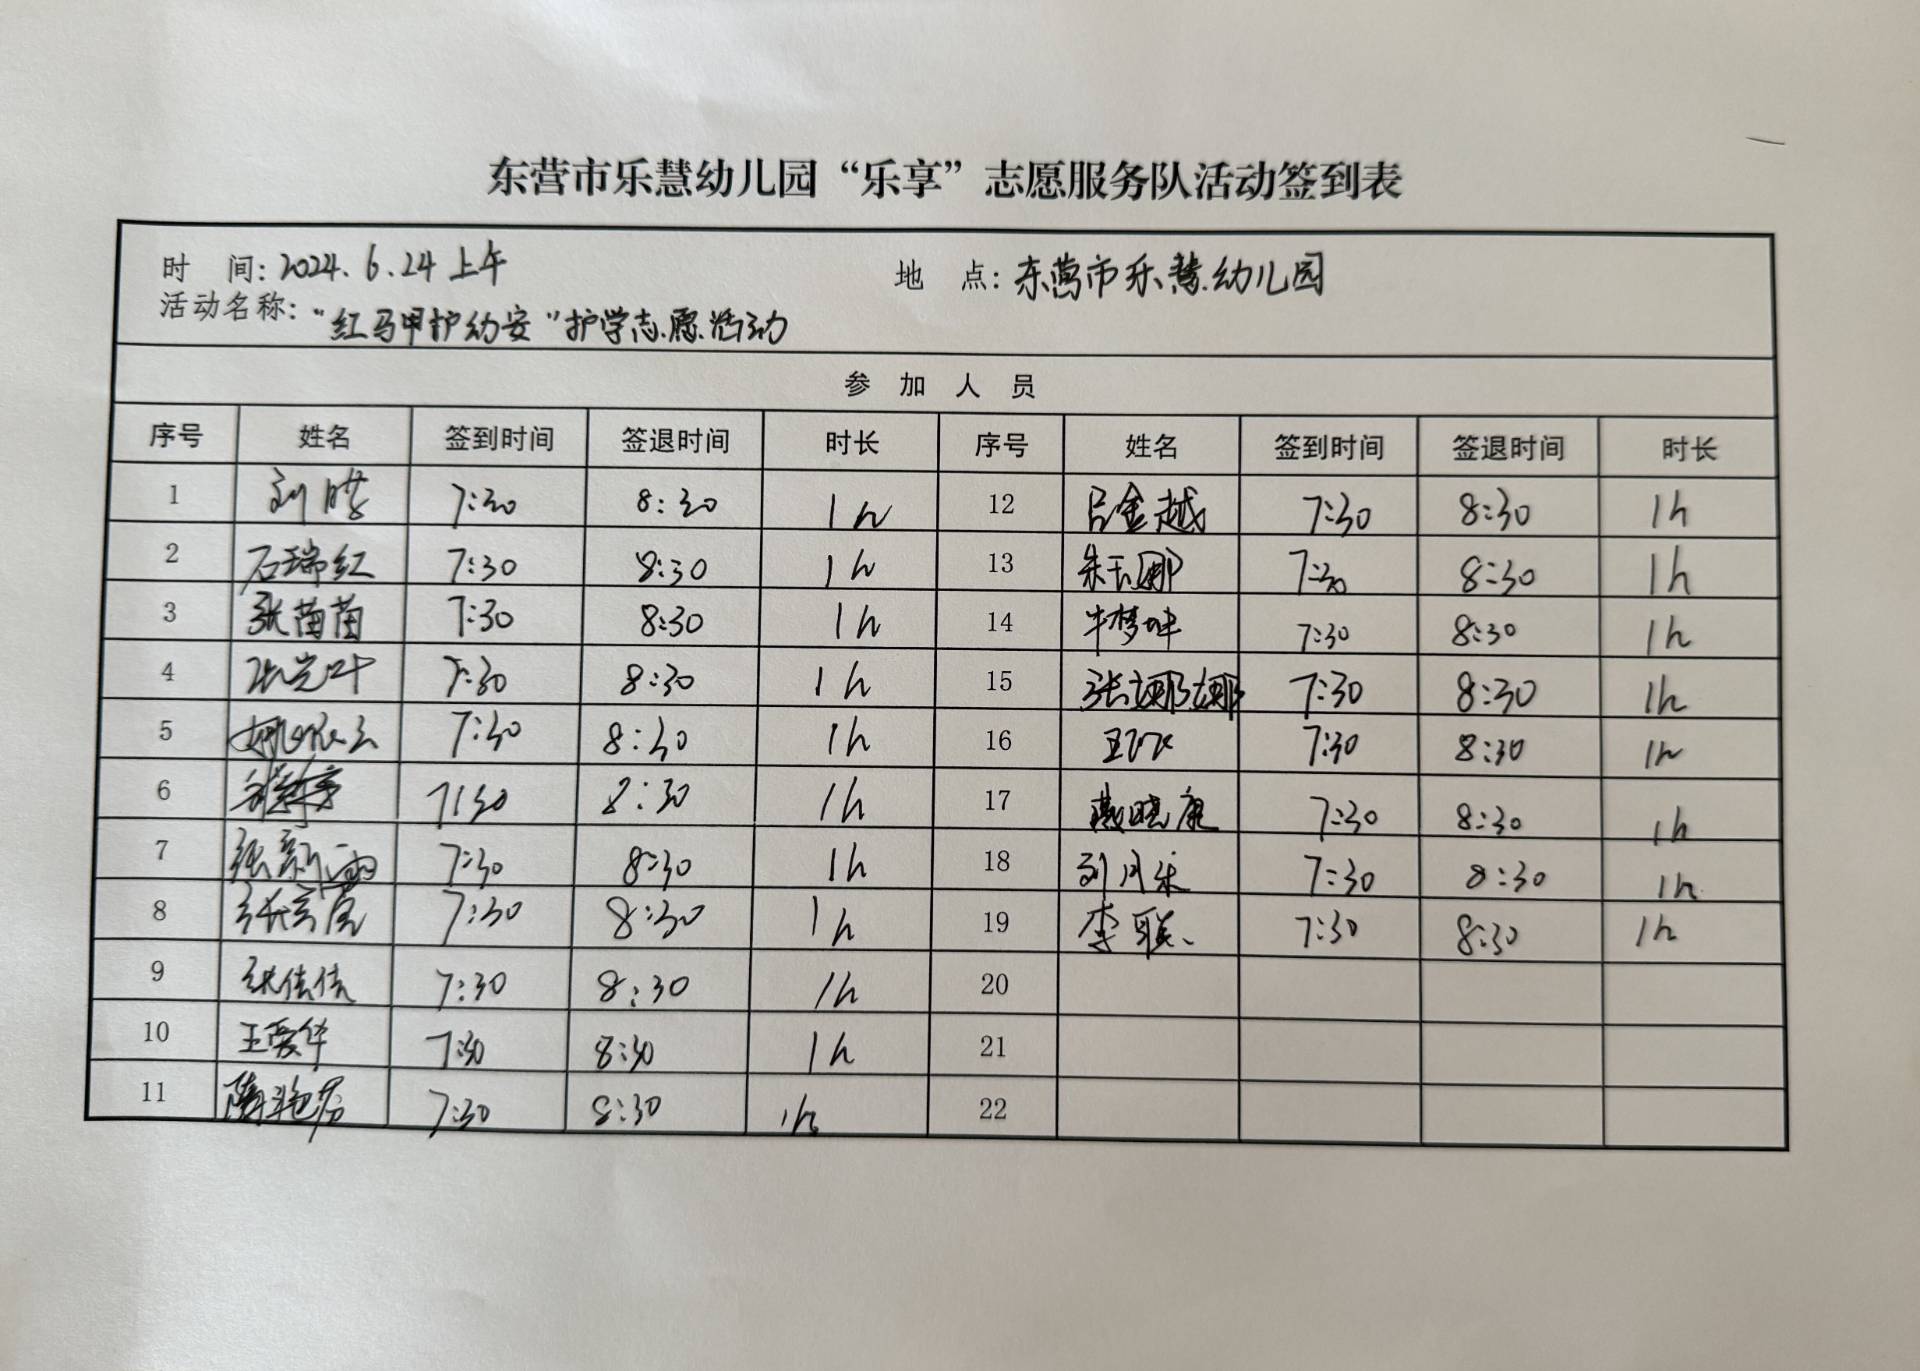 东营市乐慧幼儿园“乐享”志愿服务队活动签到表
时 间：2024.6.24上午 地 点：东营市乐慧幼儿园
活动名称：“红马甲护幼安”护学志愿活动
参 加 人 员
序号 姓名 签到时间 签退时间 时长 序号 姓名 签到时间 签退时间 时长
1 刘 7:30 8:30 1h 12 吕金越 7:30 8:30 1h
2 石瑞红 7:30 8:30 1h 13 朱玉娜 7:30 8:30 1h
3 张苗苗 7:30 8:30 1h 14 牛梦 7:30 8:30 1h
4 7:30 8:30 1h 15 张娜娜 7:30 8:30 1h
5 姚依云 7:30 8:30 1h 16 王 7:30 8:30 1h
6 7:30 8:30 1h 17 戴晓 7:30 8:30 1h
7 张新雨 7:30 8:30 1h 18 刘月 7:30 8:30 1h
8 张 7:30 8:30 1h 19 李联 7:30 8:30 1h
9 张倩倩 7:30 8:30 1h 20
10 王爱华 7:30 8:30 1h 21
11 隋艳芬 7:30 8:30 1h 22